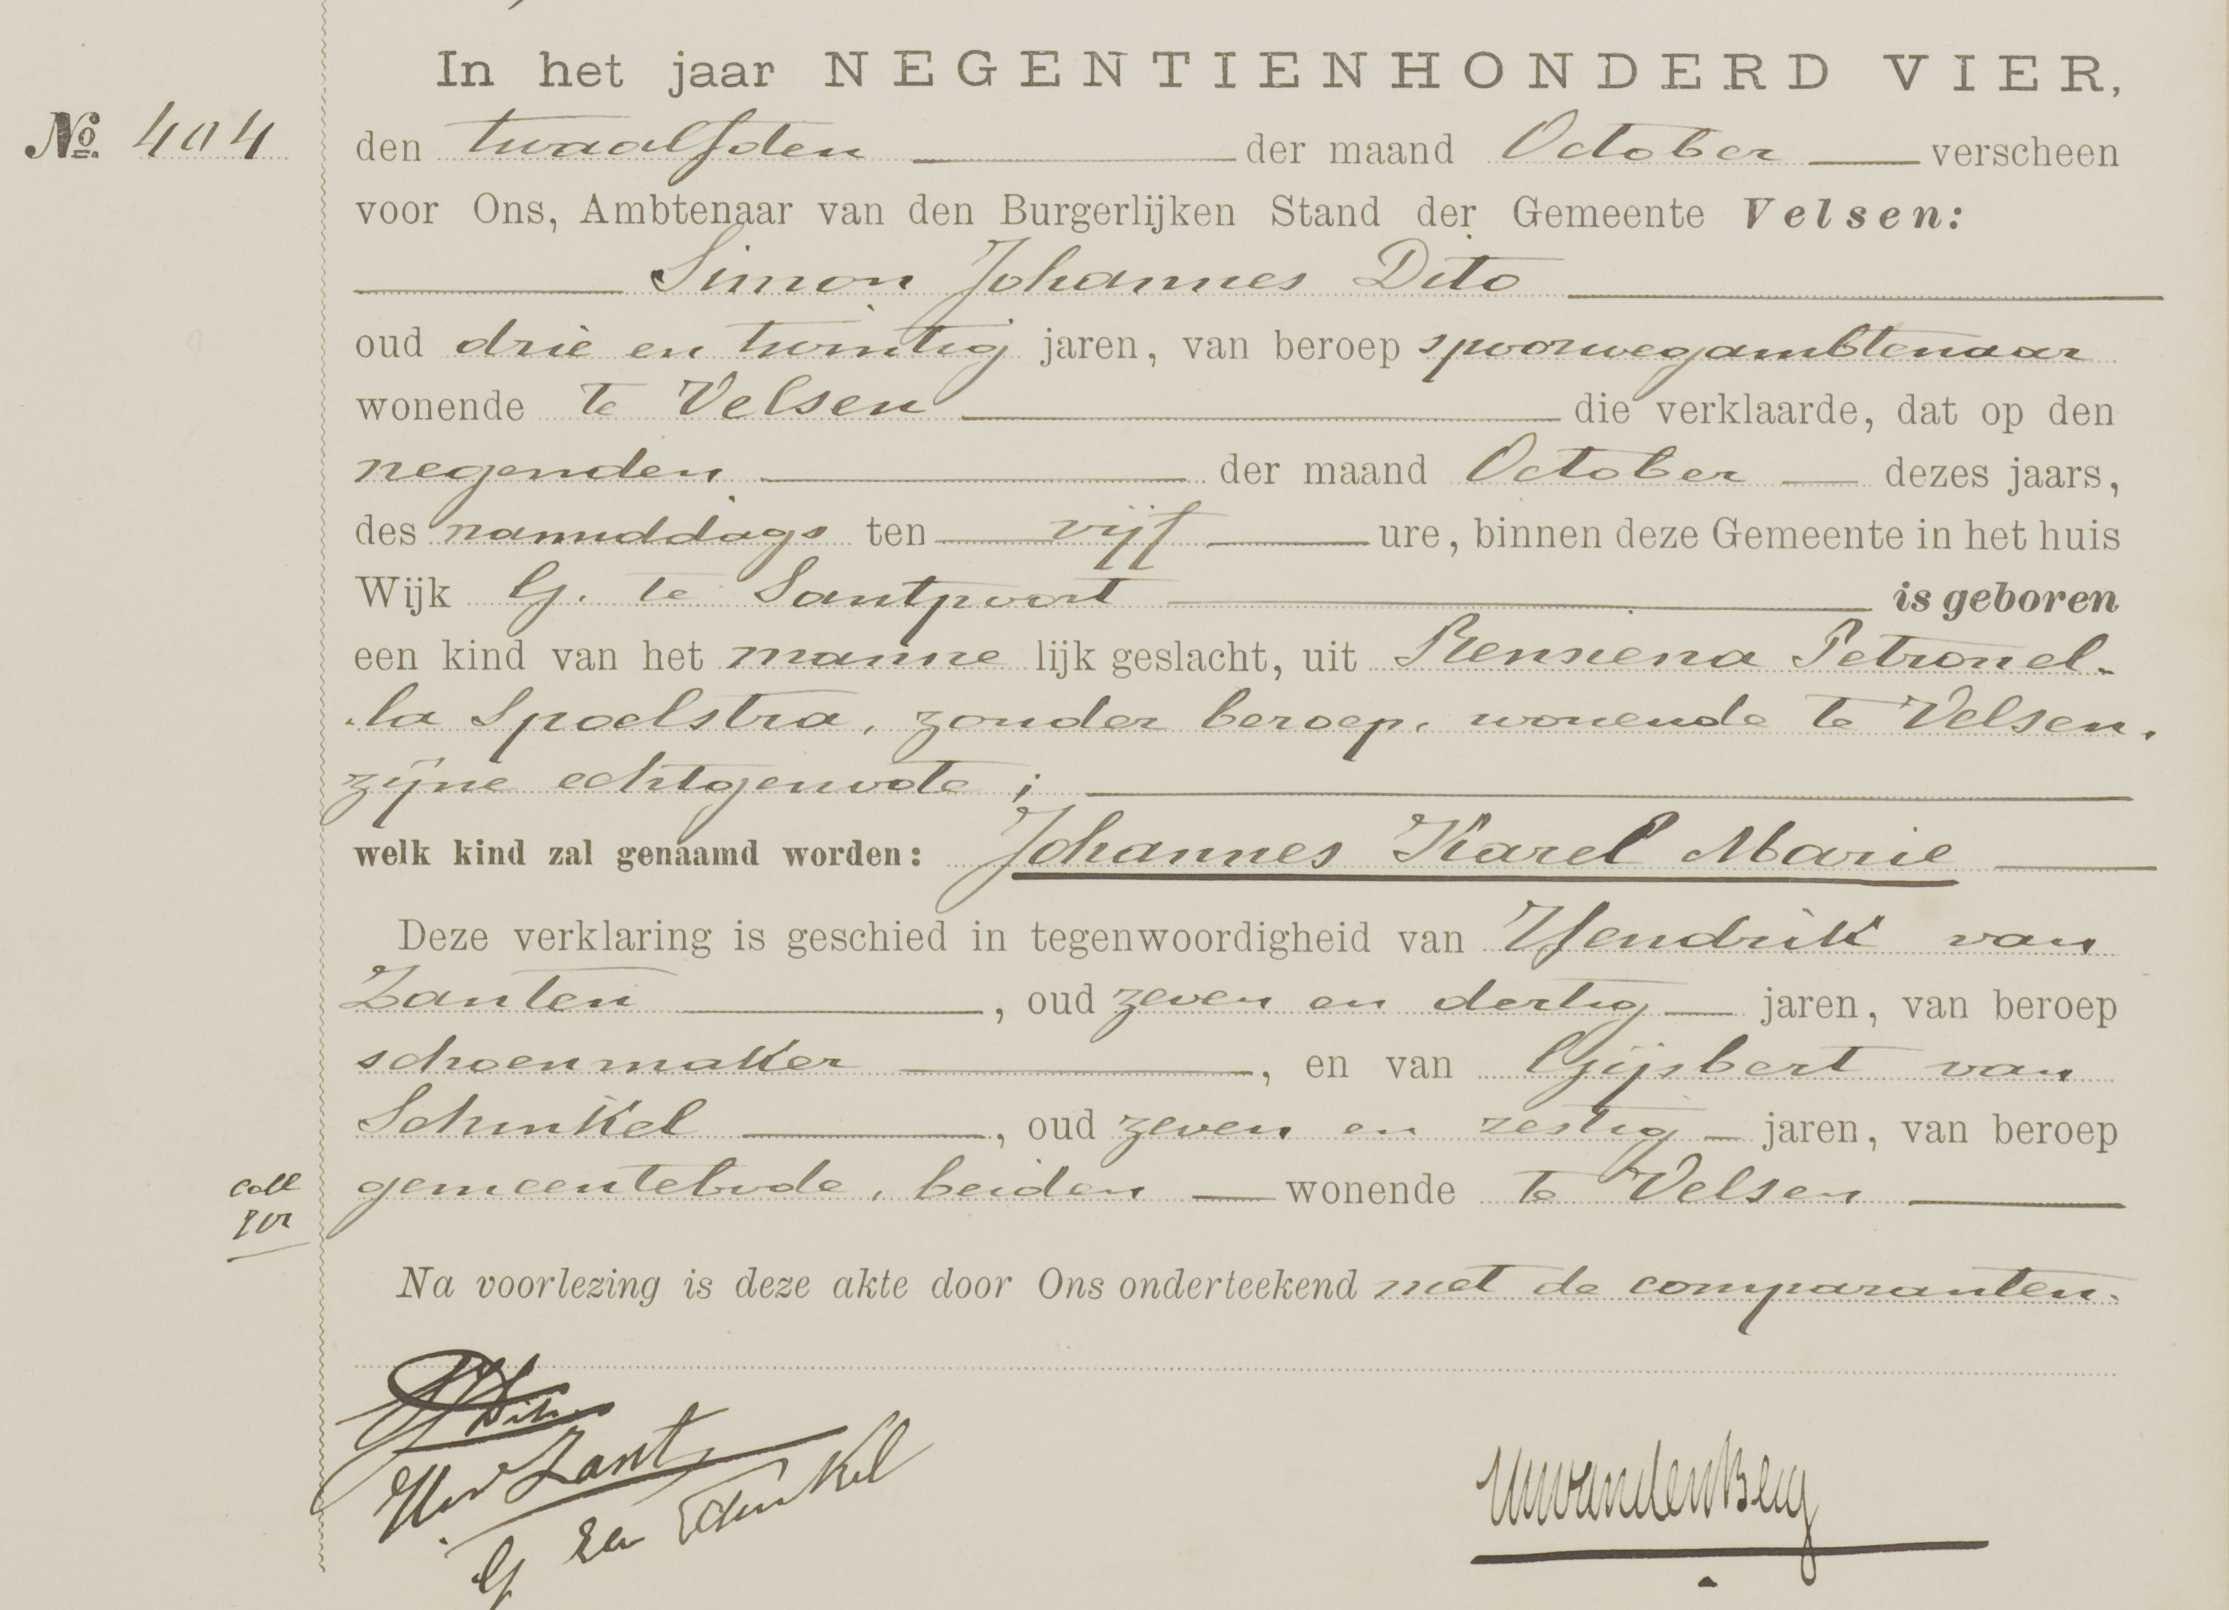 In het jaar NEGENTIENHONDERD VIER,
No. 404
den twaalfden der maand October verscheen
voor Ons, Ambtenaar van den Burgerlijken Stand der Gemeente Velsen:
Simon Johannes Dito
oud drie en twintig jaren, van beroep spoorwegambtenaar
wonende te Velsen die verklaarde, dat op den
negenden der maand October dezes jaars,
des namiddags ten vijf ure, binnen deze Gemeente in het huis
Wijk G. te Santpoort is geboren
een kind van het manne lijk geslacht, uit Rensiena Petronel-
la Spoelstra, zonder beroep, wonende te Velsen,
zijne echtgenoote;
welk kind zal genaamd worden: Johannes Karel Marie
Deze verklaring is geschied in tegenwoordigheid van Hendrik van
Zanten, oud zeven en dertig jaren, van beroep
schoenmaker, en van Gijsbert van
Schinkel, oud zeven en zestig jaren, van beroep
gemeentebode, beiden wonende te Velsen
Coll
Na voorlezing is deze akte door Ons onderteekend met de comparanten.
HvZant
G van Schinkel
vandenBerg